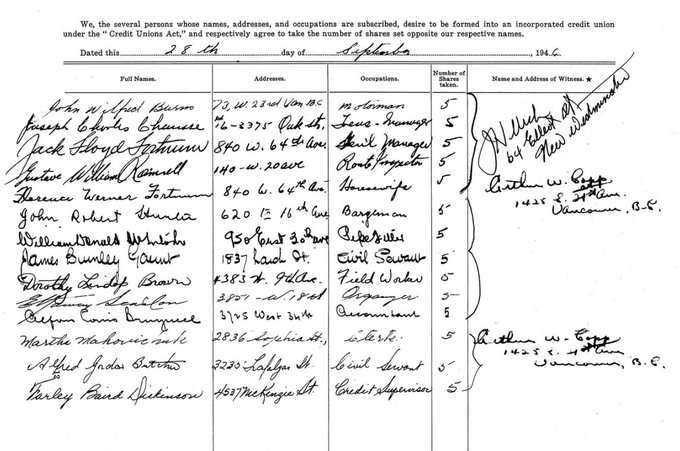 We, the several persons whose names, addresses, and occupations are subscribed, desire to be formed into an incorporated credit union
under the "Credit Unions Act," and respectively agree to take the number of shares set opposite our respective names.
Dated this 28th day of September, 1946
Full Names. Addresses. Occupations. Number of Shares taken. Name and Address of Witness. ★
John Wilfred Burns 73, W. 23rd Van BC motorman 5
Joseph Charles 3375 Oak St, Manager 5
Jack Floyd Fortnum 840 W. 64th Ave. Manager 5
Gustave William 140 - W. 20 ave Inspector 5
Florence Werner Fortnum 840 W. 64th Ave. Housewife 5
John Robert 620 E 16th Ave Bargeman 5
William Donald 950 East 20 ave 5
James Bunley 1837 St. Civil Servant 5
Dorothy Lindsp Brown 4383 W. 9th Ave. Field Worker 5
3851 - W. 18 Organizer 5
3725 West 34th Accountant 5
Martha 2836 Sophia St., Clerk. 5
Alfred 3220 Trafalgar St. Civil Servant 5
Farley Baird Dickinson 4537 McKenzie St. Credit Supervisor 5
64 St
New Westminster
Arthur W. Copp
1425 E. 21st Ave.
Vancouver, B.C.
Arthur W. Copp
1425 E. 21st Ave
Vancouver, B.C.